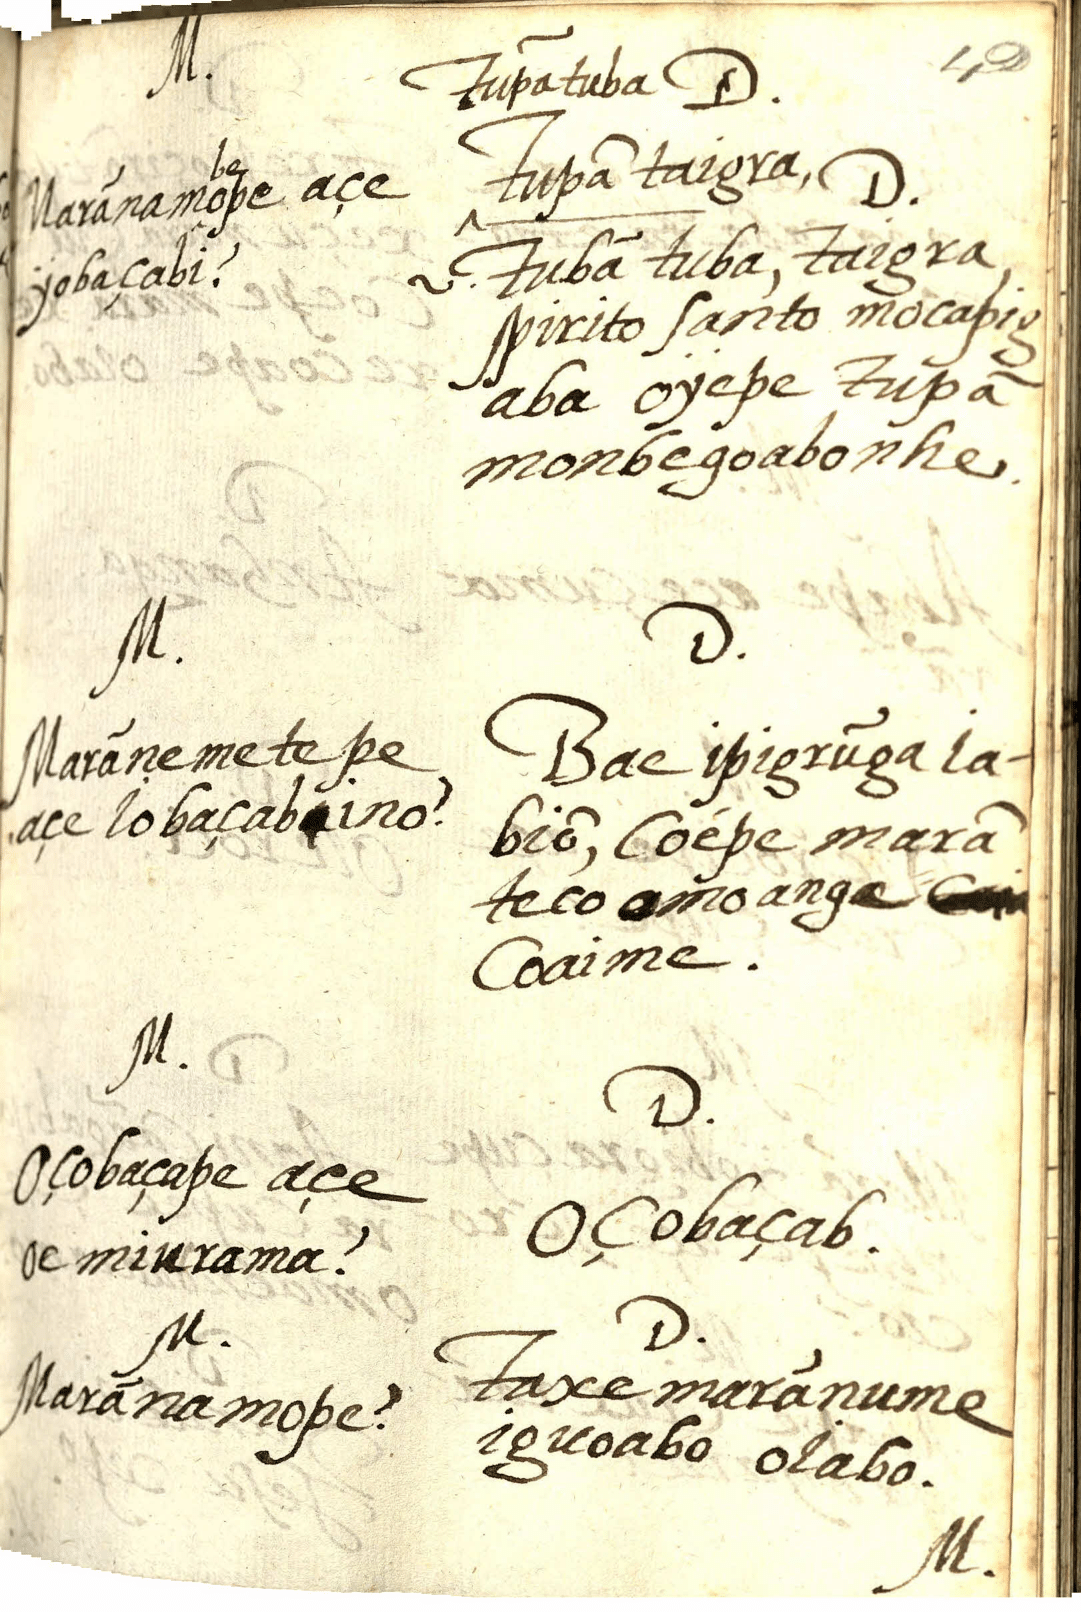 42
M.
Tupãtuba D.
Marãnamobepe açe
yobaçabi?
Tupã taigra, D.
Tubã tuba, taigra,
spirito santo mocapig
aba oyepe Tupã
monbegoabo nhe.
M.
D.
Marãnemetepe
açe iobaçab ino?
Bae ipigrũga ia-
biõ, Coépe marã
teco amo anga
Coaime.
M.
D.
Oçobaçape açe
oemiurama?
Oçobaçab.
M.
D.
Marãnamope?
Taxe marãnume
iguoabo oiabo.
M.